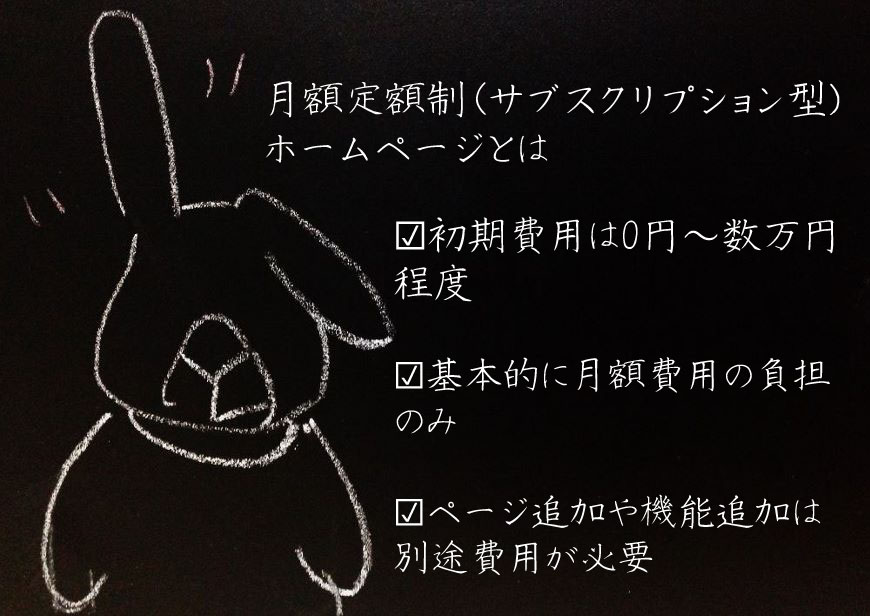 月額定額制(サブスクリプション型)
ホームページとは
☑初期費用は0円～数万円
程度
☑基本的に月額費用の負担
のみ
☑ページ追加や機能追加は
別途費用が必要